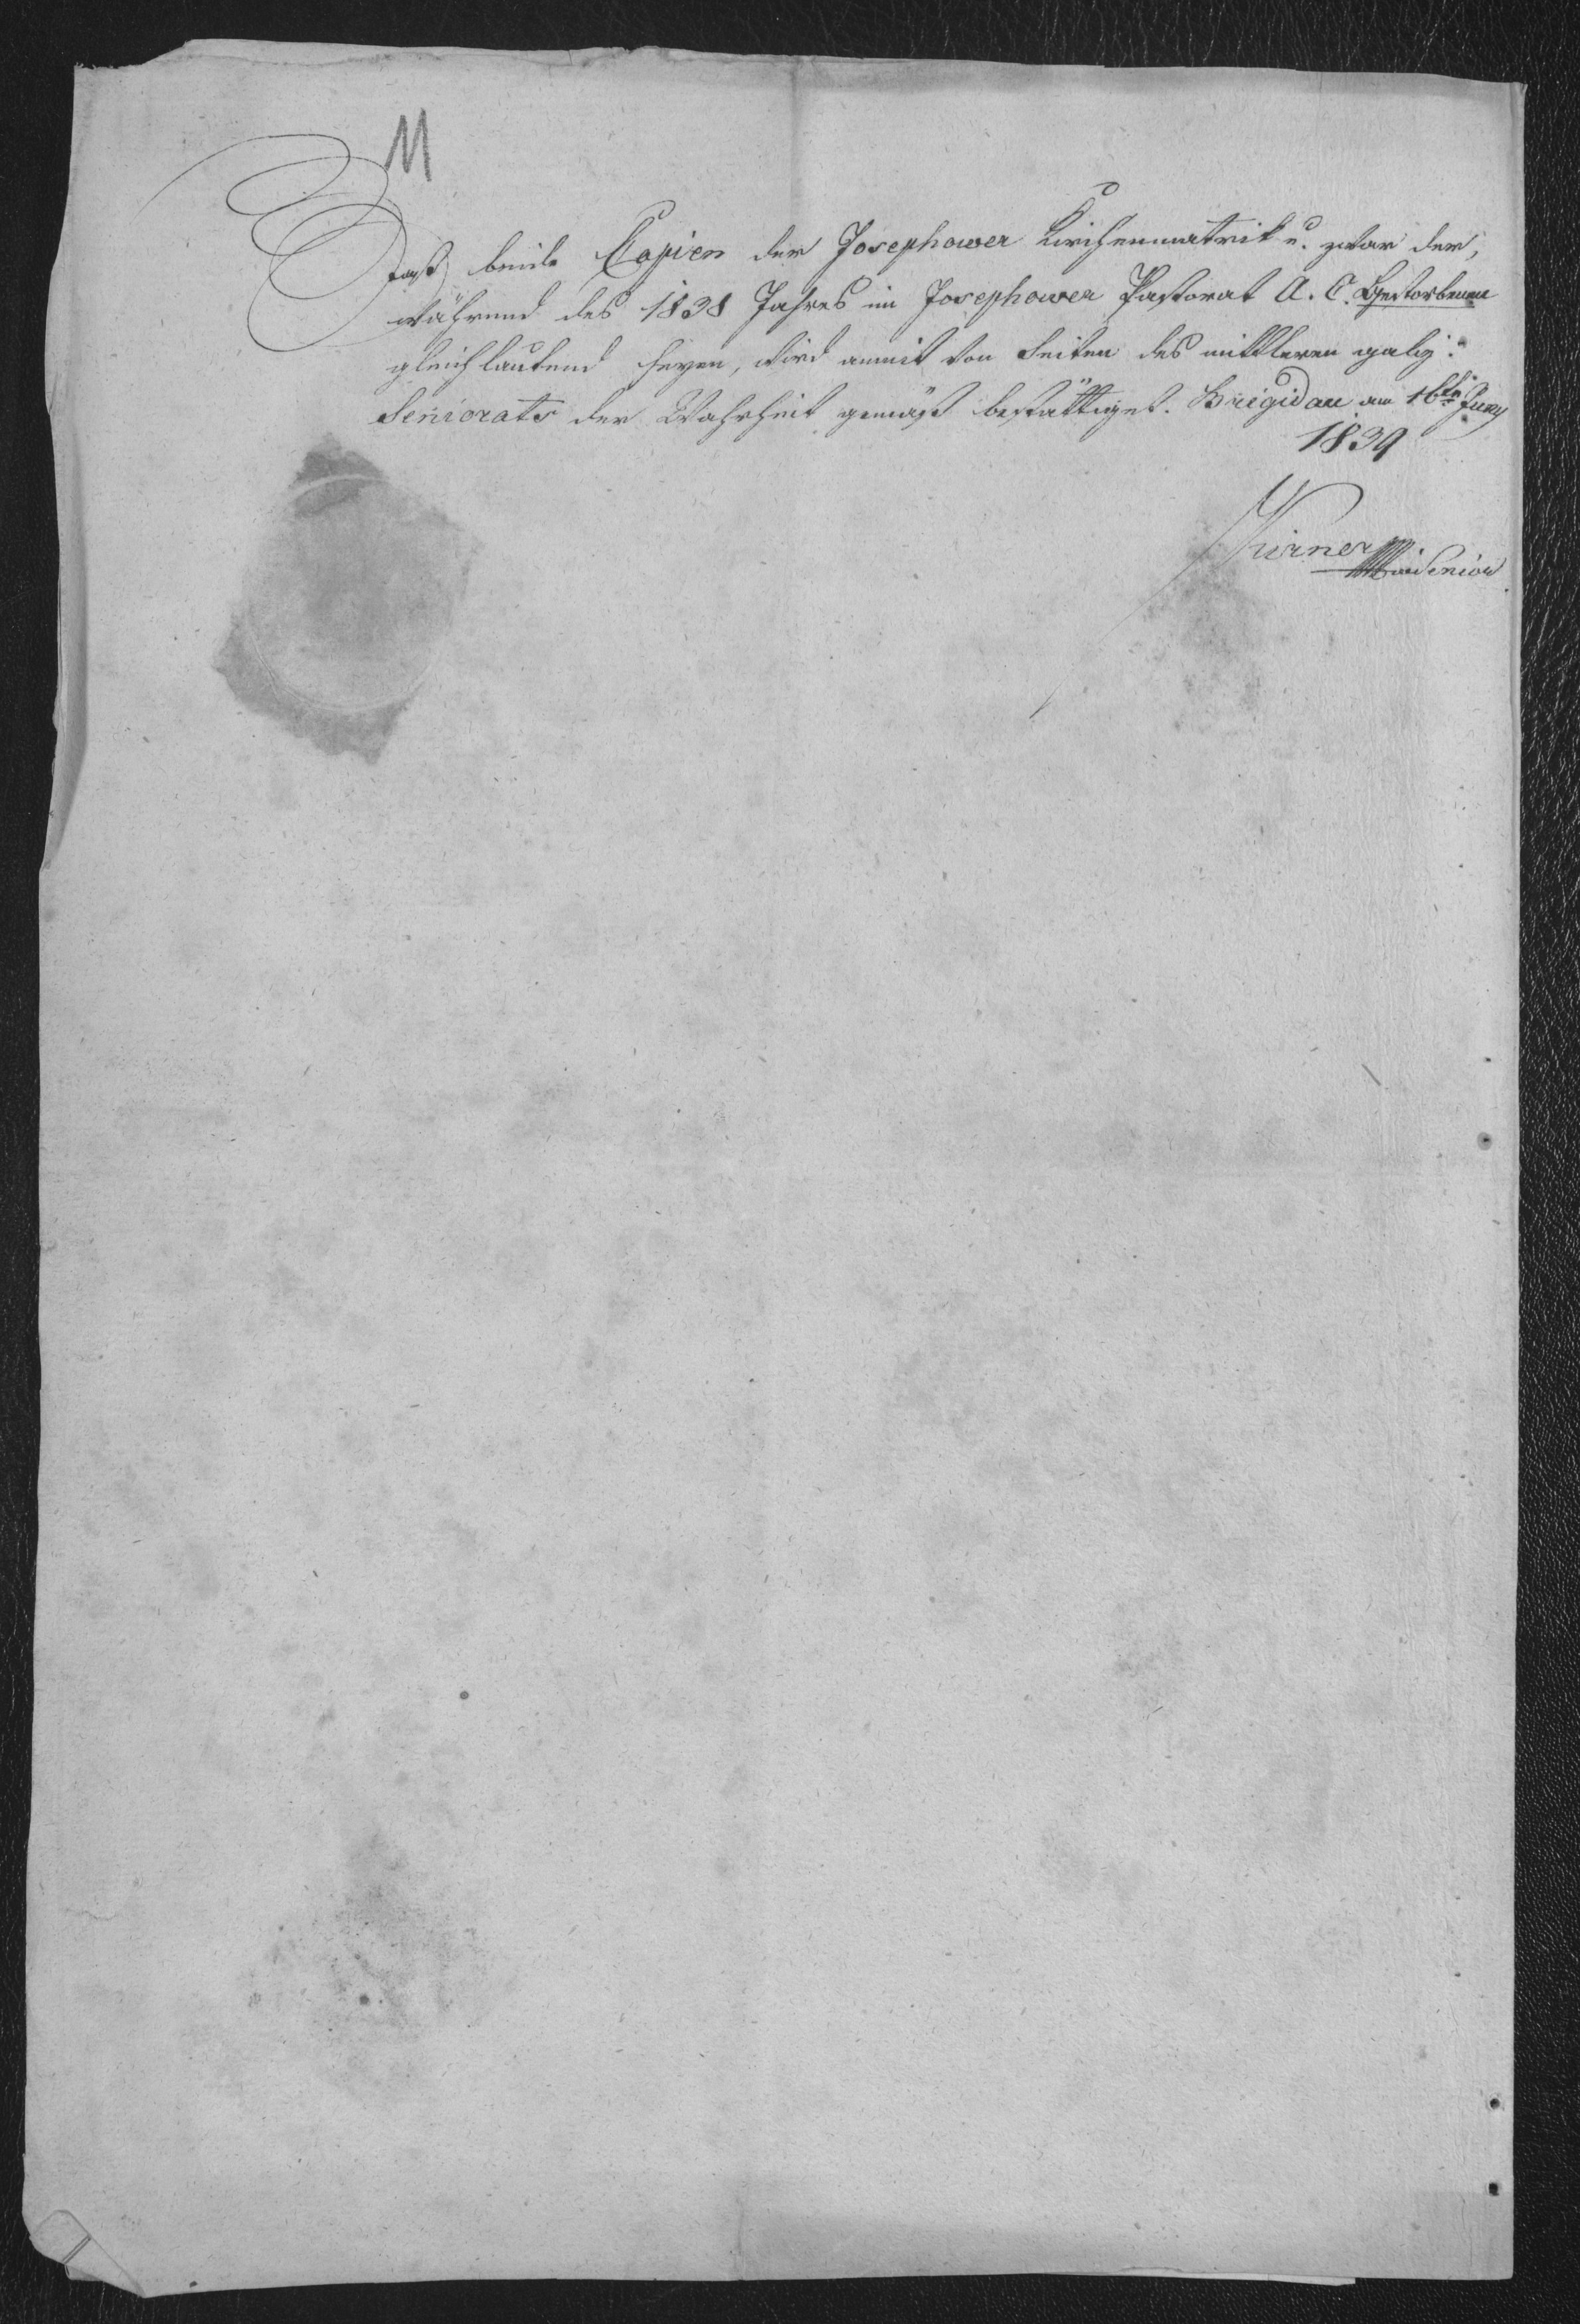 11
Daß beide Copien der Josephower Kirchenmatrik u. zwar der,
während des 1838 Jahres im Josephower Pastorat A. C. Gestorbenen
gleichlautend seyen, wird anmit von Seiten des mittleren galiz:
Seniorats der Wahrheit gemäß bestättiget. Brigidau am 16ten Juny
1839
Senior